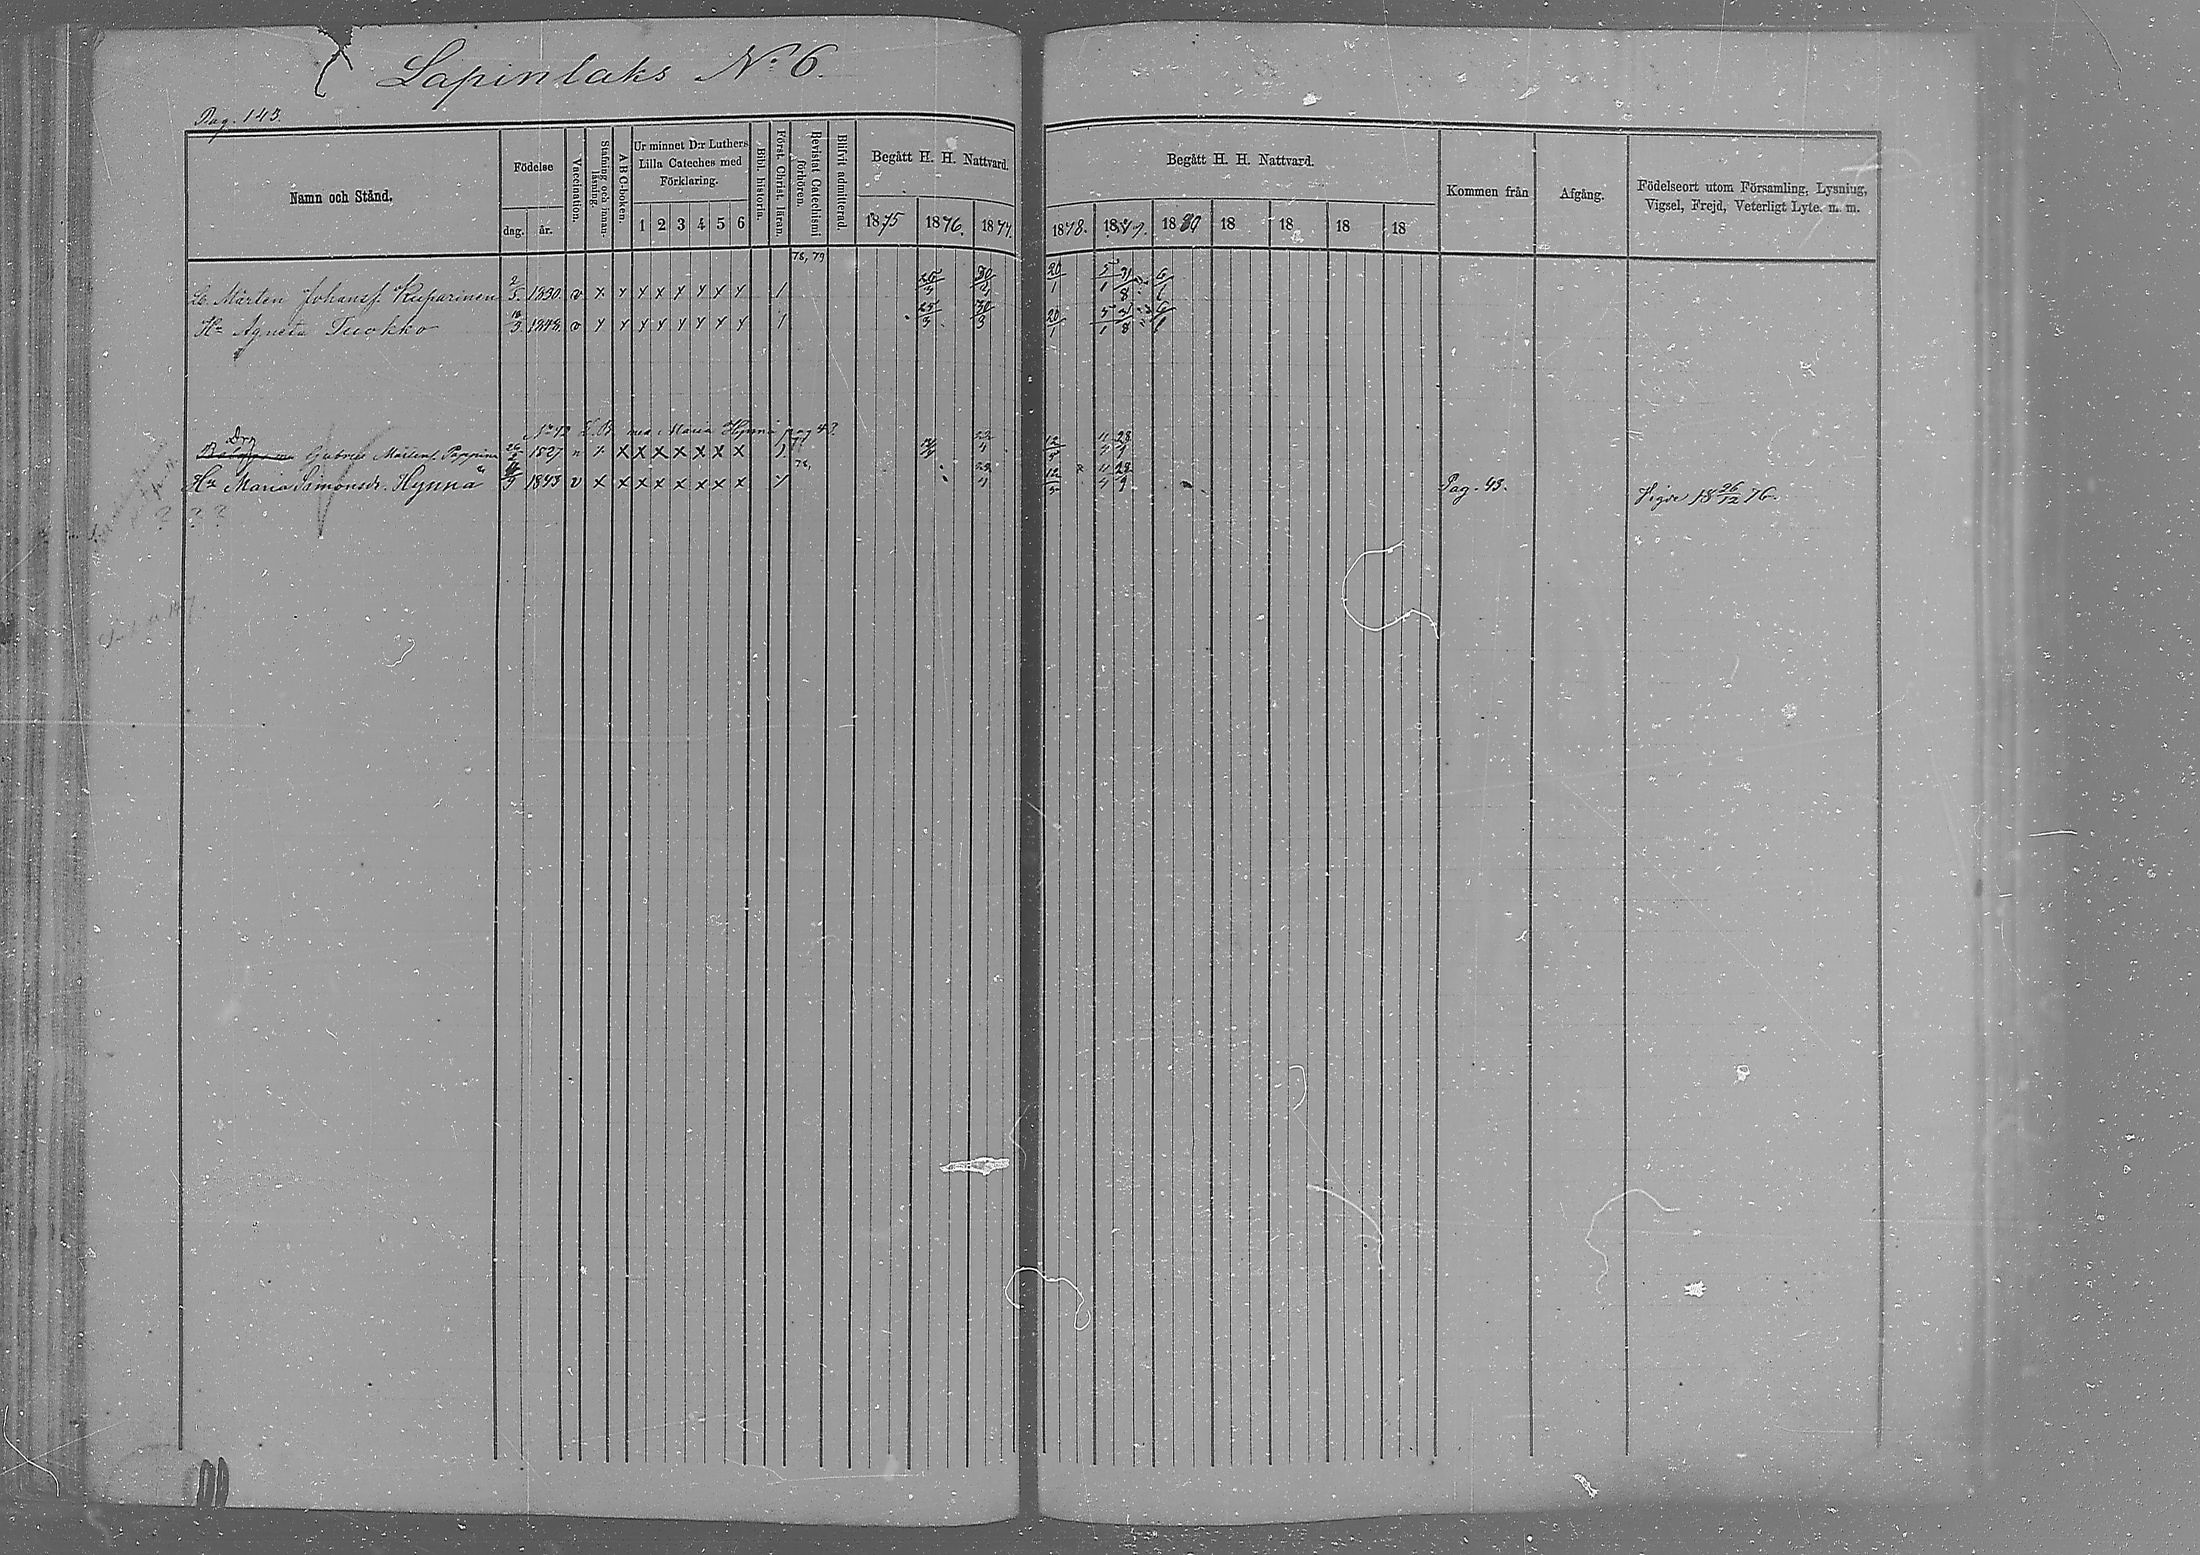 Lapinlaks No 6.
Pag. 143.
Namn och Stånd.
Födelse
dag. år.
Vaccination.
Stafning och innanläsning.
A B C-boken.
Ur minnet D:r Luthers Lilla Cateches med Förklaring.
1 2 3 4 5 6
Bibl. historia.
Först. Christ. läran.
Bevistat Catechismi förhören.
Blifvit admitterad.
Begått H. H. Nattvard.
1875 1876. 1877.
Begått H. H. Nattvard.
1878. 1879. 1880 18 18 18 18
Kommen från
Afgång.
Födelseort utom Församling, Lysning, Vigsel, Frejd, Veterligt Lyte. m. m.
78, 79
Mårten Johanss. Kuparinen 2/5 1830 v x x x x x x x x 1 30/4 20/1 5/1 31/8 6/1
Hu Agneta Tuokko 1848 v x x x x x x x x 1 25/3 30/3 20/1 5/1 31/8 6/1
No 12 Maria Hynnä pag 43.
Drg
Gabriel Mårtens. Pappinen 1827 x x x x x x x 12/5
78,
Hu Maria Simonsdr. Hynnä 1843 v x x x x x x x x 12/5 Pag. 43. Vigde 18 26/12 76.
? ? ?